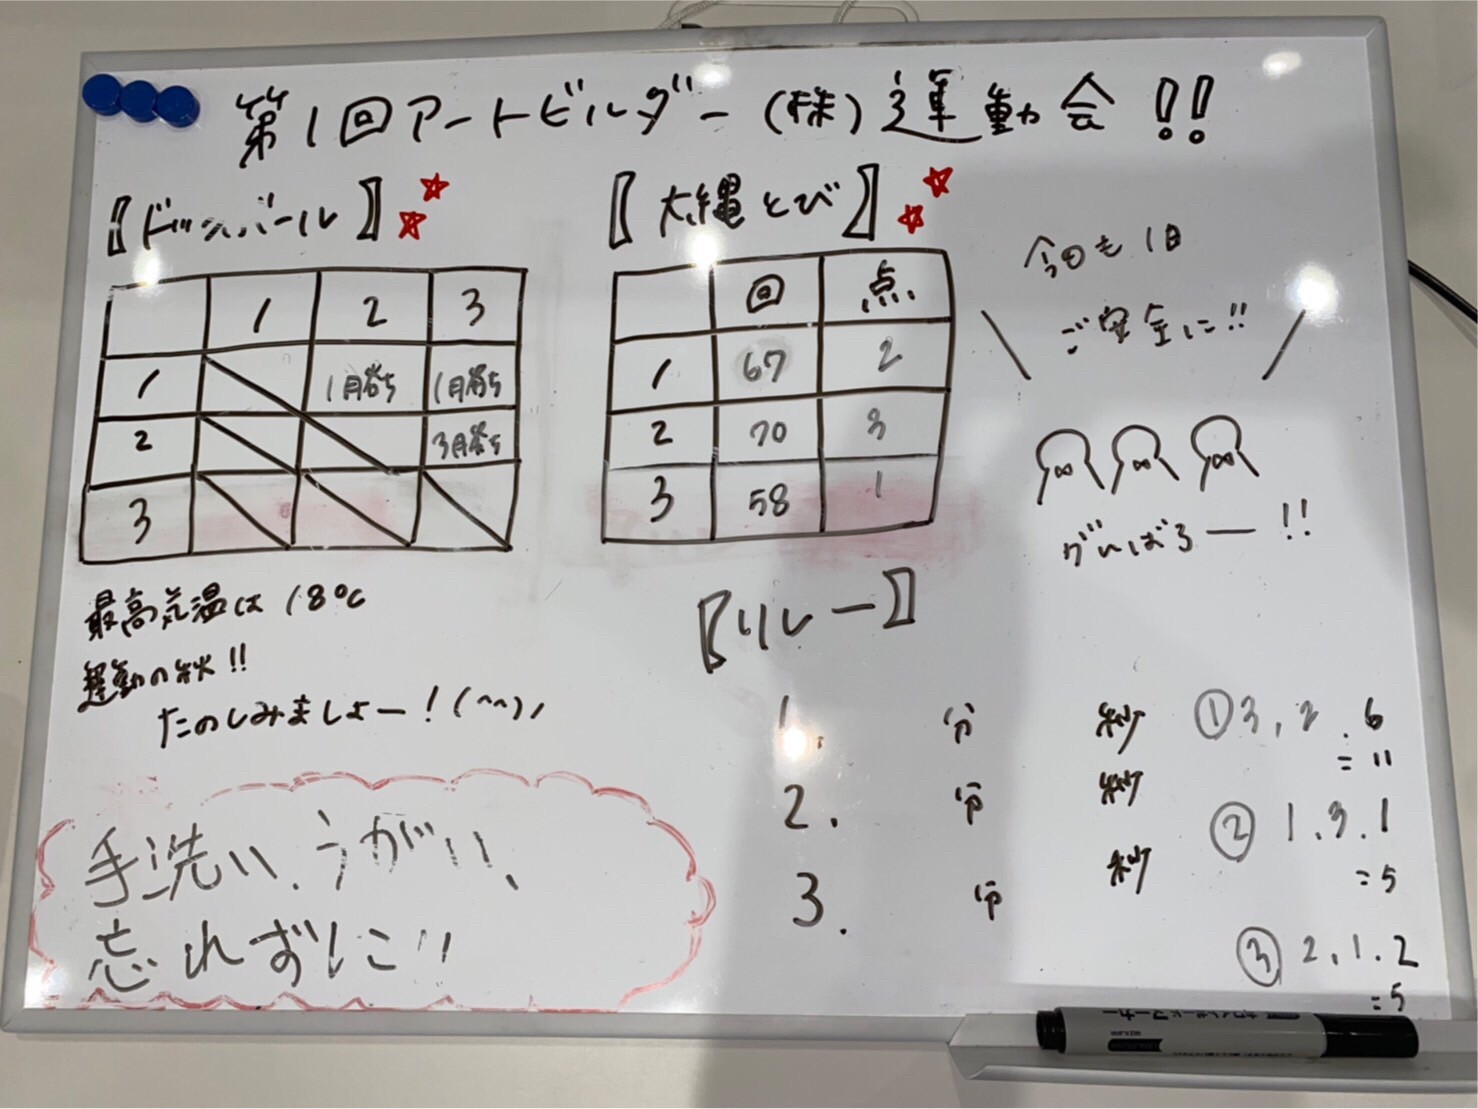 第1回アートビルダー(株)運動会!!
【ドッヂボール】
1 2 3
1 1月勝ち 1月勝ち
2 3月勝ち
3
最高気温は18℃
運動の秋!!
たのしみましょー!(^^)ノ
手洗い、うがい、
忘れずに!!
【大縄とび】
回 点
1 67 2
2 70 3
3 58 1
今日も1日
ご安全に!!
がんばろー!!
【リレー】
1. 分 秒
2. 分 秒
3. 分 秒
①3,2.6
=11
②1.3.1
=5
③2,1.2
=5